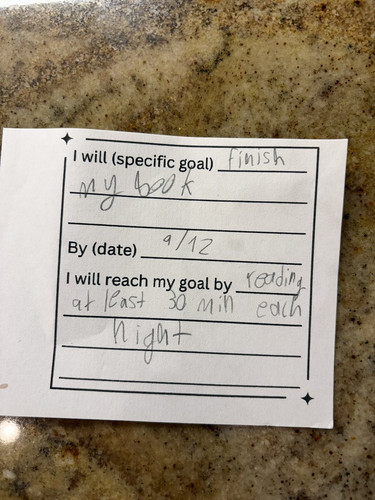 I will (specific goal) finish
my book
By (date) 9/12
I will reach my goal by reading
at least 30 min each
night